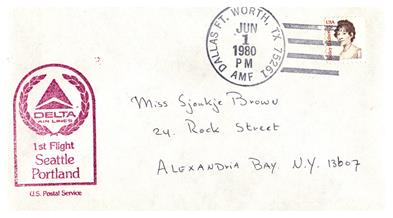 DALLAS FT. WORTH, TX 75261
JUN
1
1980
PM
AMF
USA
DELTA
AIR LINES
1st Flight
Seattle
Portland
U.S. Postal Service
Miss Sjoukje Brown
24, Rock Street
ALEXANDRIA BAY. N.Y. 13607